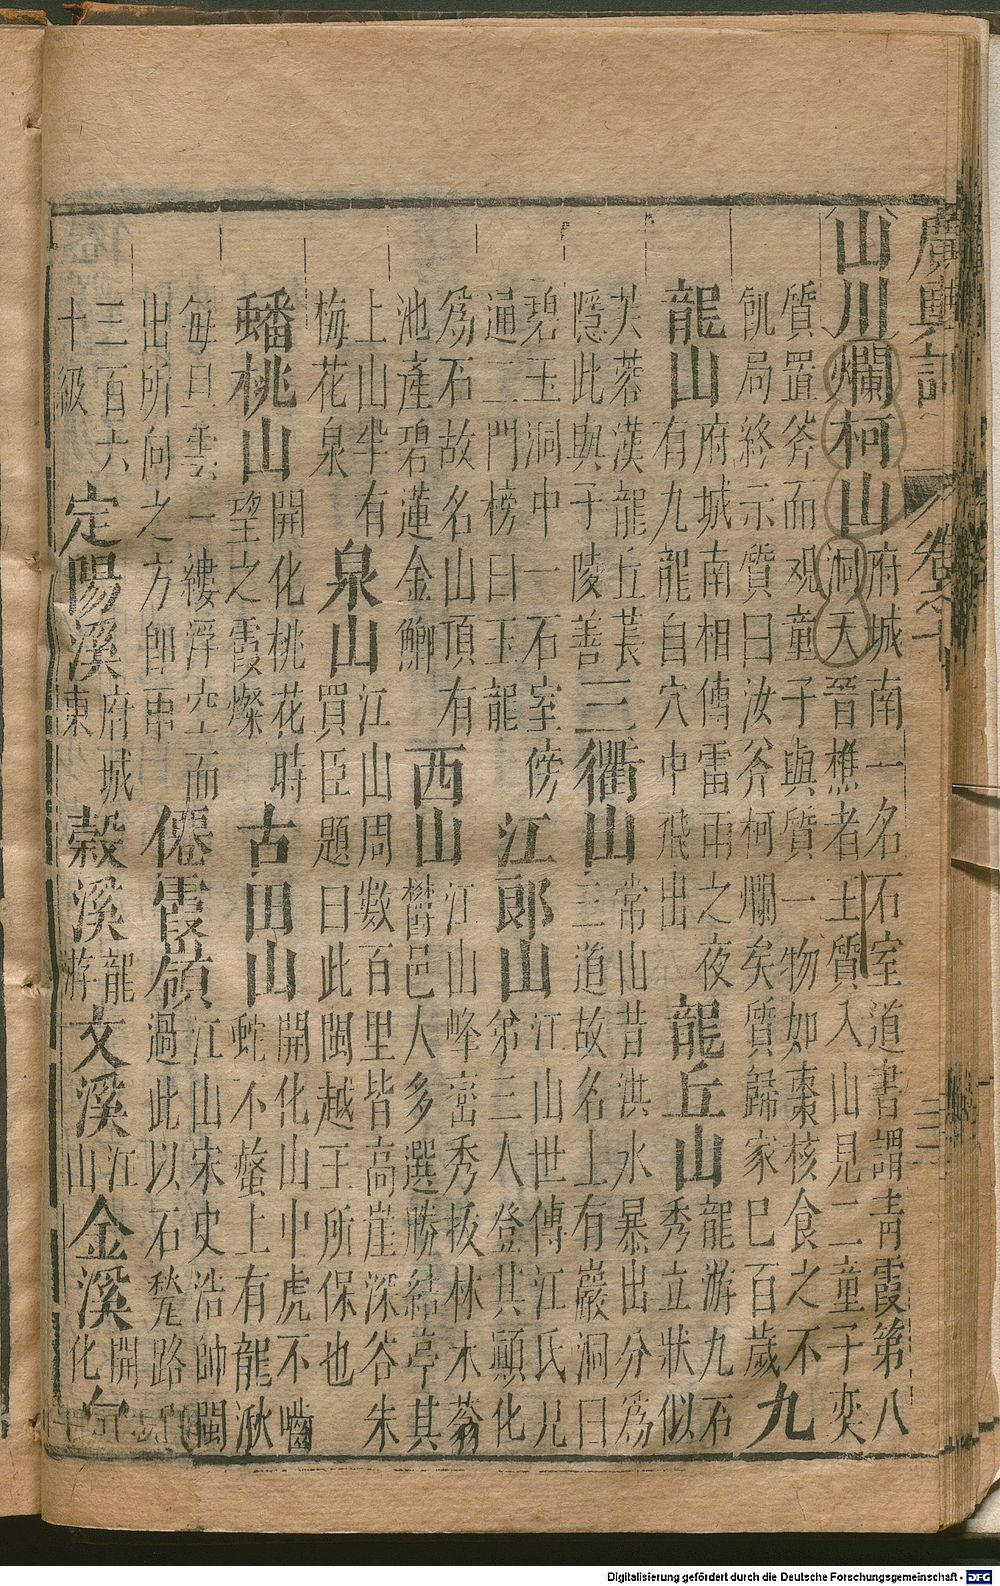 廣輿記 卷之十 三
山川 爛柯山
府城南一名石室道書謂青霞第八
洞天晉樵者王質入山見二童子奕
質置斧而观童子與質一物如棗核食之不
飢局終示質曰汝斧柯爛矣質歸家巳百歲
九
龍山
府城南相傳雷雨之夜
有九龍自穴中飛出
龍丘山
龍游九石
秀立狀似
芙蓉漢龍丘萇
隱此與子陵善
三衢山
常山昔洪水暴出分爲
三道故名上有巖洞曰
碧玉洞中一石室傍
通二門榜曰玉龍
江郎山
江山世傳江氏兄
弟三人登其巔化
爲石故名山頂有
池產碧蓮金鯽
西山
江山峰巒秀拔林木蓊
鬱邑人多選勝結亭其
上山半有
梅花泉
泉山
江山周數百里皆高崖深谷朱
買臣題曰此閩越王所保也
蟠桃山
開化桃花時
望之霞燦
古田山
開化山中虎不嚙
蛇不螫上有龍湫
每旦雲一縷浮空而
出所向之方即雨
僊霞嶺
江山宋史浩帥閩
過此以石甃路
三百六
十級
定陽溪
府城
東
穀溪
龍
游
文溪
江
山
金溪
開
化
白
Digitalisierung gefördert durch die Deutsche Forschungsgemeinschaft - DFG